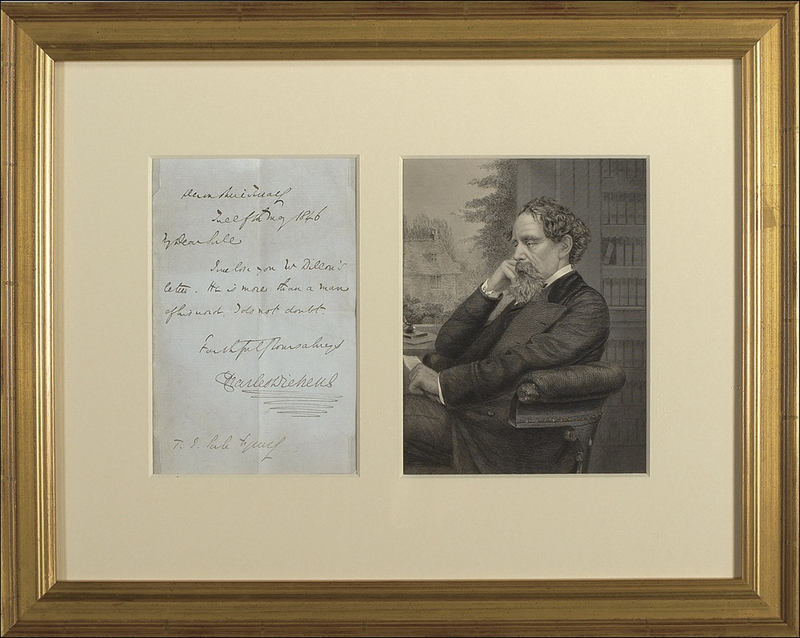 Twelfth May 1846
My Dear Sale
I enclose you Mr Dillon's
letter. He is more than a man
of his word, I do not doubt.
Faithfully Yours always
Charles Dickens
T. J. Sale Esquire